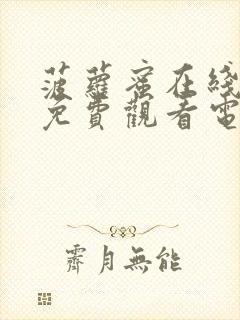 菠蘿蜜在綫
免費觀看電
霽月無能